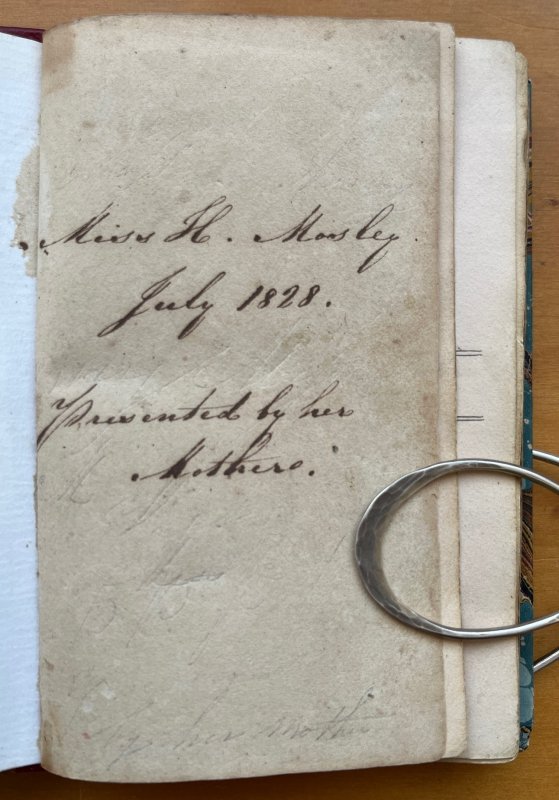 Miss H. Mosley.
July 1828.
Presented by her
Mothers.
by her mother